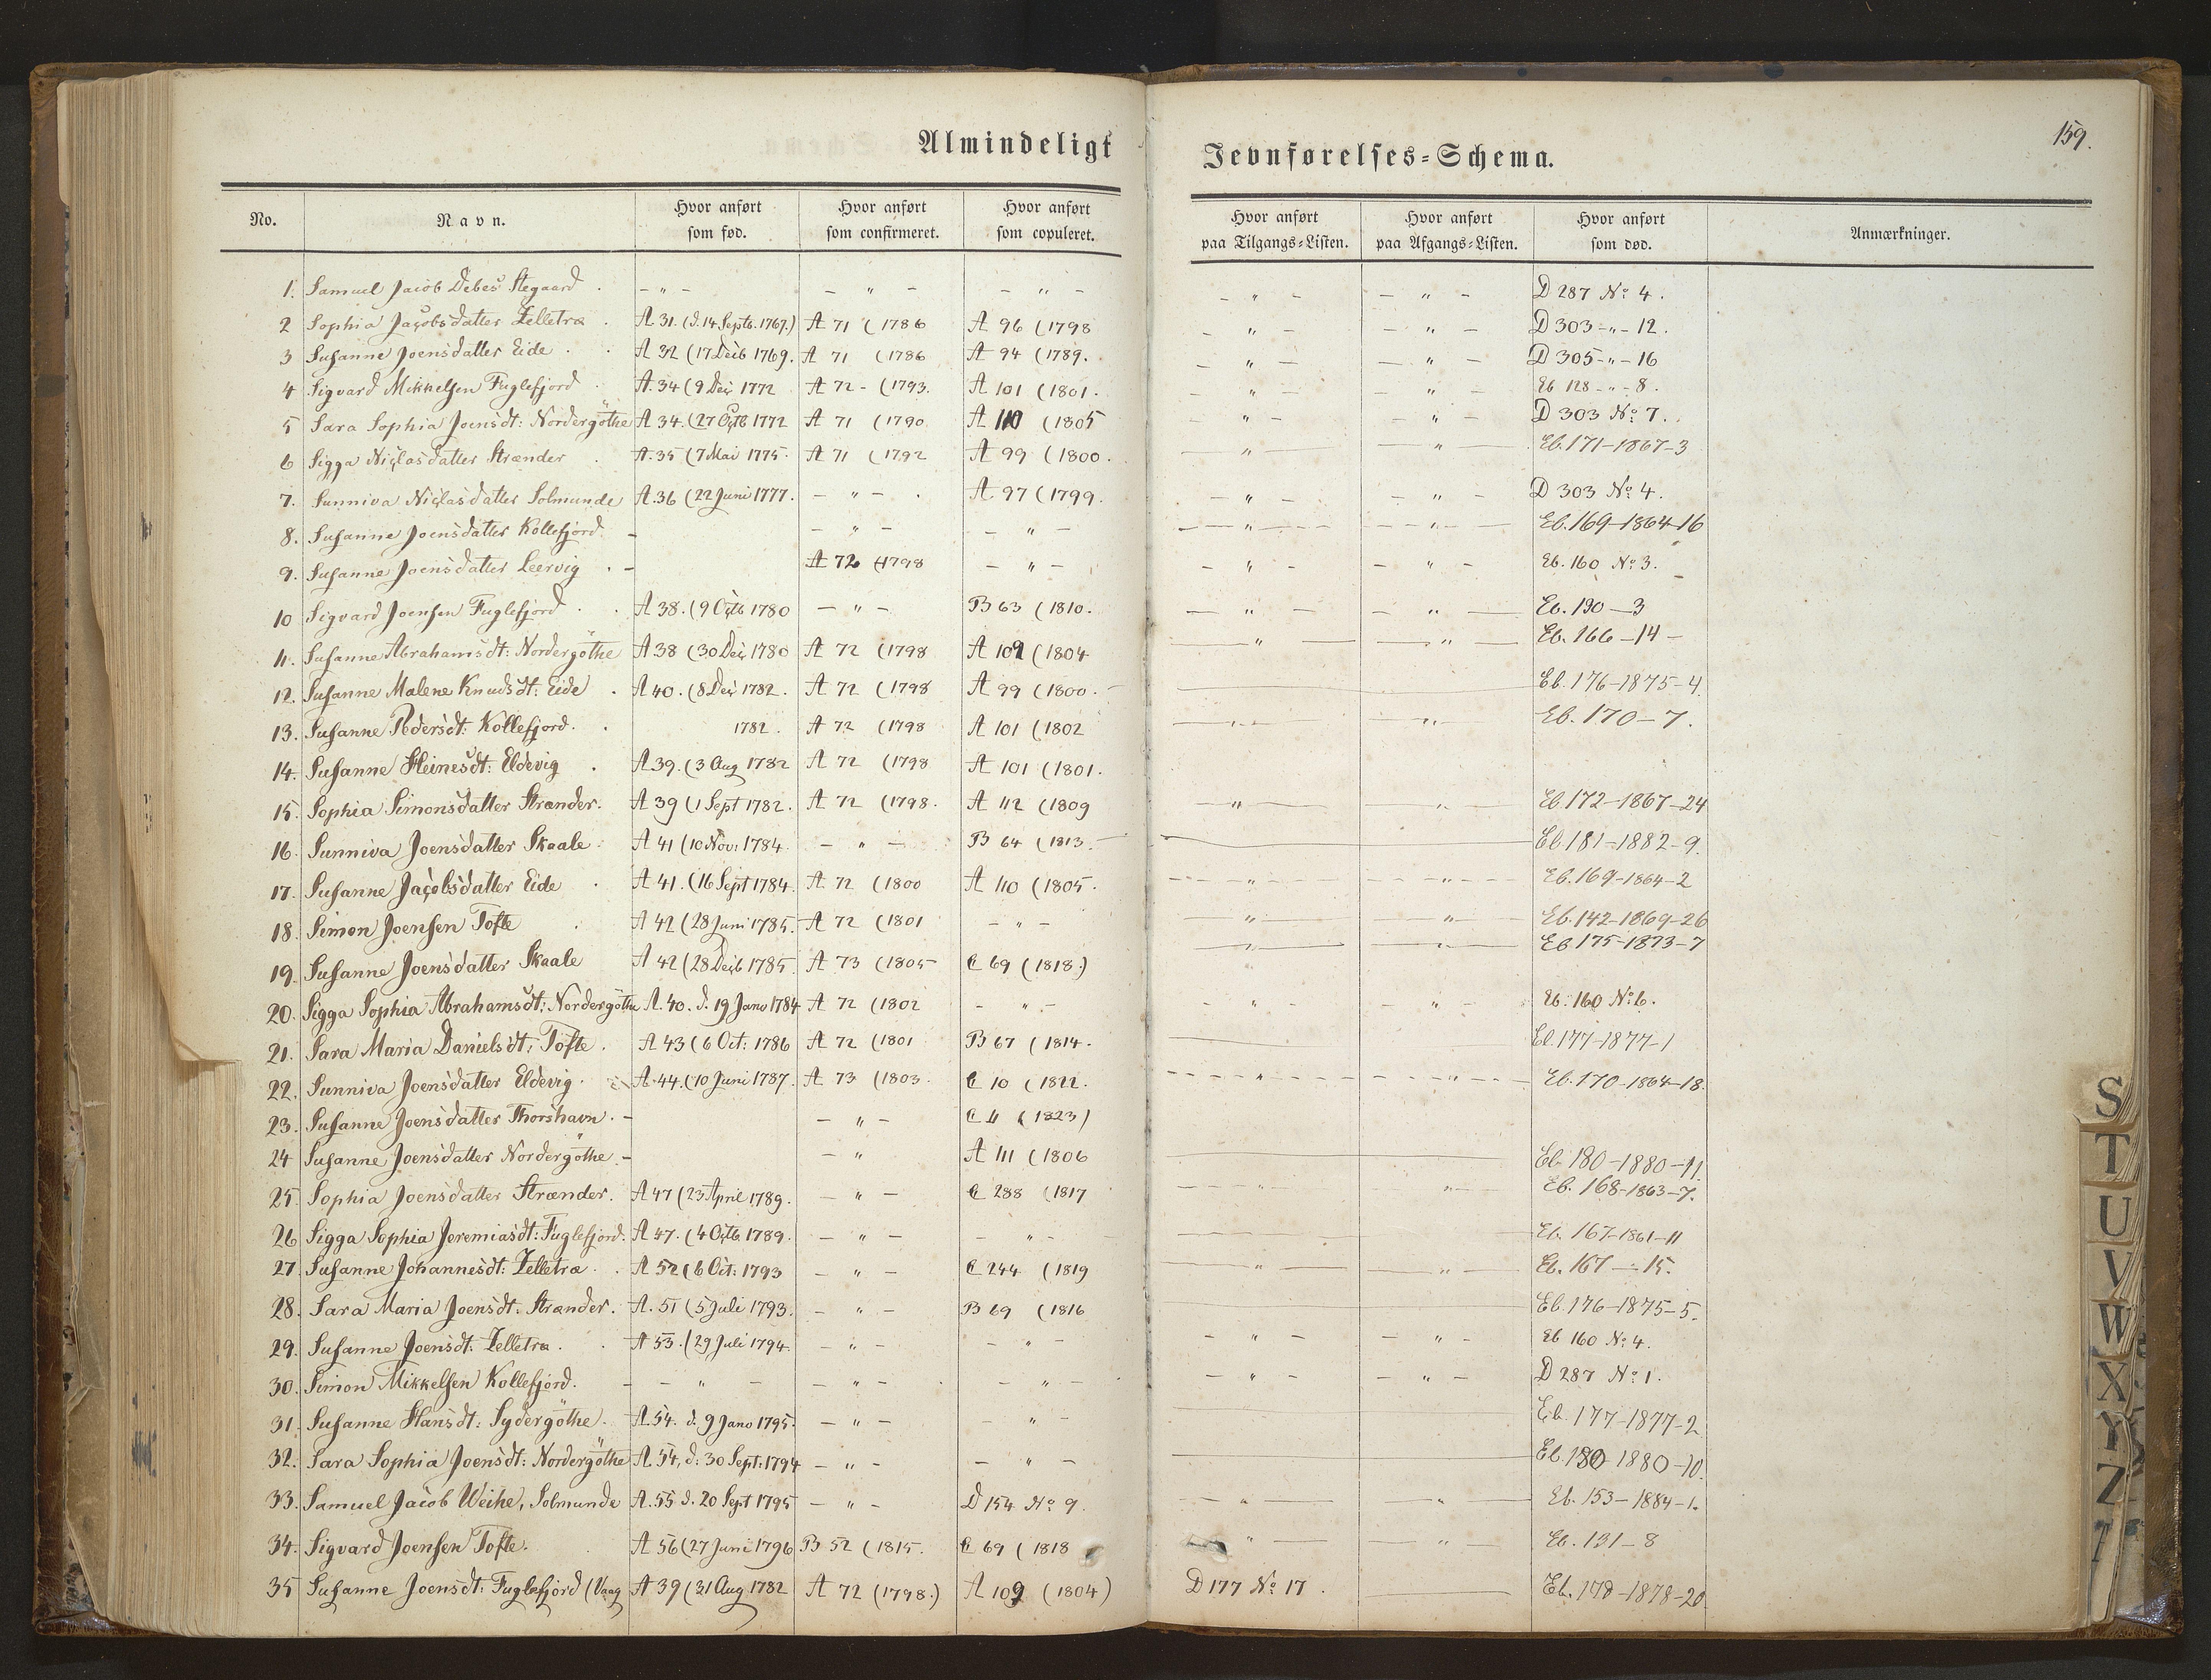 Almindeligt Jevnførelses=Schema.
159.
No. Navn. Hvor anført som fød. Hvor anført som confirmeret. Hvor anført som copuleret. Hvor anført paa Tilgangs=Listen. Hvor anført paa Afgangs=Listen. Hvor anført som død. Anmærkninger.
1. Samuel Jacob Debes Stegaard . - " - - " - - " - - " - - " - D 287 No 4.
2 Sophia Jacobsdatter Zelletræ . A 31. (d. 14 Septb. 1767.) A 71 (1786 A 96 (1798 - " - - " - D 303 - " - 12.
3 Susanne Joensdatter Eide . A 32 (17 Decb 1769. A 71 (1786 A 94 (1789. - " - - " - D 305 - " - 16
4 Sigvard Mikkelsen Fuglefjord . A. 34 (9 Dec 1772 A 72 - (1793. A 101 (1801. - " - - " - Eb 128 - " - 8.
5 Sara Sophia Joensdt: Nordergöthe A 34. (27 Octb 1772 A 71 (1790 A 110 (1805 - " - - " - D 303 No 7.
6 Sigga Niclasdatter Strænder . A. 35 (7 Mai 1775. A 71 (1792 A 99 (1800. - " - - " - Eb. 171-1867-3
7. Sunniva Niclasdatter Solmunde A. 36 (22 Juni 1777. - " - A 97 (1799. - " - - " - D 303 No 4.
8. Susanne Joensdatter Kollefjord. - - " - - " - - " - - " - Eb. 169-1864-16
9. Susanne Joensdatter Leervig . - A 72 (1798 - " - - " - - " - Eb. 160 No 3.
10 Sigvard Joensen Fuglefjord . A 38. (9 Octb 1780 - " - B 63 (1810. - " - - " - Eb. 130-3
11. Susanne Abrahamsdt: Nordergöthe A 38 (30 Dec 1780 A 72 (1798 A 109 (1804 - " - - " - Eb. 166-14-
12. Susanne Malene Knudsdt: Eide . A 40. (8 Dec 1782. A 72 (1798 A 99 (1800. - Eb. 176-1875-4.
13. Susanne Pedersdt: Kollefjord. . 1782. A 72 (1798 A 101 (1802 - " - - " - Eb. 170-7.
14. Susanne Heinesdt: Eldevig . A 39. (3 Aug 1782 A 72 (1798 A 101 (1801.
15. Sophia Simonsdatter Strænder. A 39 (1 Sept 1782. A 72 (1798. A 112 (1809 - " - - " - Eb. 172-1867-24
16. Sunniva Joensdatter Skaale. A 41 (10 Nov: 1784. - " - B 64 (1813. - Eb 181-1882-9.
17. Susanne Jacobsdatter Eide . A 41. (16 Sept 1784. A 72 (1800 A 110 (1805. - " - - " - Eb. 169-1864-2
18. Simon Joensen Tofte . A 42 (28 Juni 1785. A 72 (1801 - " - - " - - " - Eb. 142-1869-26
19. Susanne Joensdatter Skaale A 42 (28 Decb 1785. A 73 (1805 C 69 (1818.) - " - - " - Eb 175-1873-7
20. Sigga Sophia Abrahamsdt: Nordergöthe A. 40. d. 19 Jano 1784 A 72 (1802 - " - - " - - " - Eb. 160 No 6.
21. Sara Maria Danielsdt: Tofte. A 43 (6 Oct: 1786 A 72 (1801 B 67 (1814. - Eb. 177-1877-1
22. Sunniva Joensdatter Eldevig. A. 44. (10 Juni 1787. A 73 (1803. C 10 (1822. - " - - " - Eb. 170-1864-18.
23. Susanne Joensdatter Thorshavn. - - " - C 11 (1823)
24 Susanne Joensdatter Nordergöthe. - - " A 111 (1806 - Eb. 180-1880-11.
25. Sophia Joensdatter Strænder. A 47 (23 April 1789. - " - C 288 (1817 - " - - " - Eb. 168-1863-7.
26 Sigga Sophia Jeremiasdt: Fuglefjord. A 47. (4 Octb 1789. - " - - " - - Eb. 167-1861-11
27. Susanne Johannesdt: Zelletræ . A 52 (6 Oct: 1793 - " - C 244 (1819 - " - - " - Eb. 167 - 15.
28. Sara Maria Joensdt: Strænder. A. 51 (5 Juli 1793. - " - B 69 (1816 - Eb. 176-1875-5.
29. Susanne Joensdt: Zelletræ . A 53. (29 Juli 1794. - " - - " - - " - - " - Eb 160 No 4.
30. Simon Mikkelsen Kollefjord. - - " - - " - - " - - " - - " - D 287 No 1.
31. Susanne Hansdt: Sydergöthe. A. 54. d. 9 Jano 1795. - " - - " - - Eb. 177-1877-2
32. Sara Sophia Joensdt: Nordergöthe A. 54, d: 30 Sept: 1794 - " - - " - - Eb. 180-1880-10.
33. Samuel Jacob Weihe, Solmunde A. 55 d. 20 Sept 1795 - " - D 154 No 9. - " - - " - Eb. 153-1884-1.
34. Sigvard Joensen Tofte. A 56 (27 Juni 1796 B 52 (1815. C 69 (1818 " - - " - Eb. 131-8
35 Susanne Joensdt: Fuglefjord (Vaag A 39 (31 Aug 1782 A 72 (1798.) A 109 (1804) D 177 No 17. - Eb. 178-1878-20
S
T
U
V
W
X
Y
Z